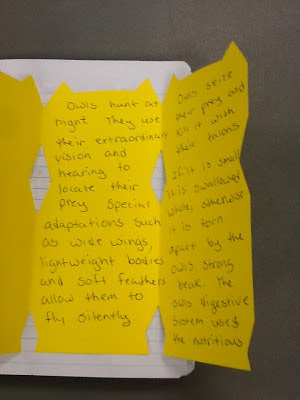 Owls hunt at
night They use
their extraordinary
vision and
hearing to
locate their
prey special
adaptations such
as wide wings,
lightweight bodies
and soft feathers
allow them to
fly silently
Owls seize
their prey and
kill it with
their talons
If it is small
it is swallowed
whole, otherwise
it is torn
apart by the
owls strong
beak. The
owls digestive
system uses
the nutritious